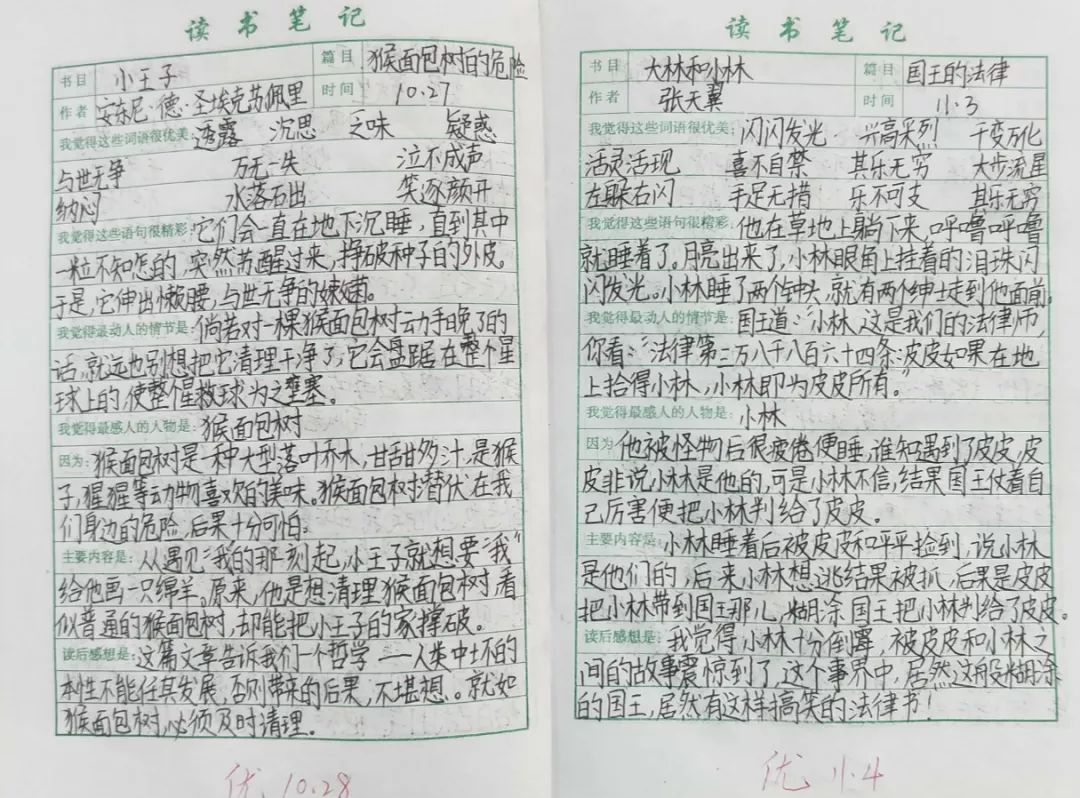 读书笔记
书目 小王子 篇目 猴面包树的危险
作者 安东尼·德·圣埃克苏佩里 时间 10.27
我觉得这些词语很优美: 透露 沉思 乏味 疑惑
与世无争 万无一失 泣不成声
纳闷 水落石出 笑逐颜开
我觉得这些语句很精彩: 它们会一直在地下沉睡,直到其中
一粒不知怎的,突然苏醒过来,挣破种子的外皮。
于是,它伸出懒腰,与世无争的嫩菌。
我觉得最动人的情节是: 倘若对一棵猴面包树动手晚了的
话,就远也别想把它清理干净了,它会盘踞在整个星
球上的,使整个星救球为之壅塞。
我觉得最感人的人物是: 猴面包树
因为: 猴面包树是一种大型落叶乔木,甘甜多汁,是猴
子,猩猩等动物喜欢的美味。猴面包树潜伏在我
们身边的危险,后果十分可怕。
主要内容是: 从遇见“我”的那刻起,小王子就想要“我”
给他画一只绵羊。原来,他是想清理猴面包树,看
似普通的猴面包树,却能把小王子的家撑破。
读后感想是: 这篇文章告诉我们一个哲学——人类中坏的
本性不能任其发展,否则带来的后果,不堪想。。就如
猴面包树,必须及时清理。
优 10.28
读书笔记
书目 大林和小林 篇目 国王的法律
作者 张天翼 时间 11.3
我觉得这些词语很优美: 闪闪发光 兴高采烈 千变万化
活灵活现 喜不自禁 其乐无穷 大步流星
左躲右闪 手足无措 乐不可支 其乐无穷
我觉得这些语句很精彩: 他在草地上躺下来,呼噜呼噜
就睡着了。月亮出来了,小林眼角上挂着的泪珠闪
闪发光。小林睡了两个钟头,就有两个绅士走到他面前。
我觉得最动人的情节是: 国王道:“小林,这是我们的法律师,
你看:‘法律第三万八千八百六十四条:皮皮如果在地
上拾得小林,小林即为皮皮所有。”
我觉得最感人的人物是: 小林
因为: 他被怪物后很疲倦便睡,谁知遇到了皮皮,皮
皮非说小林是他的,可是小林不信,结果国王仗着自
己厉害便把小林判给了皮皮。
主要内容是: 小林睡着后被皮皮和平平捡到,说小林
是他们的,后来小林想逃结果被抓,后果是皮皮
把小林带到国王那儿,糊涂国王把小林判给了皮皮。
读后感想是: 我觉得小林十分倒霉,被皮皮和小林之
间的故事震惊到了,这个事界中,居然这般糊涂
的国王,居然有这样搞笑的法律书!
优 11.4